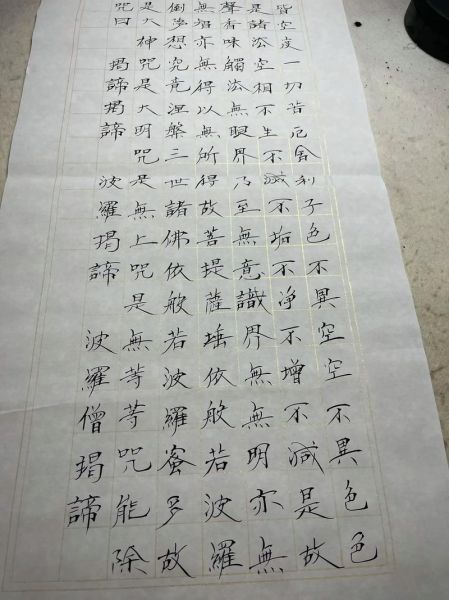 皆空度一切苦厄舍利子色不異空空不異色色
是諸法空相不生不滅不垢不淨不增不減是故
聲香味觸法無眼界乃至無意識界無無明亦無
無智亦無得以無所得故菩提薩埵依般若波羅
倒夢想究竟涅槃三世諸佛依般若波羅蜜多故
是大神咒是大明咒是無上咒是無等等咒能除
咒曰 揭諦揭諦 波羅揭諦 波羅僧揭諦